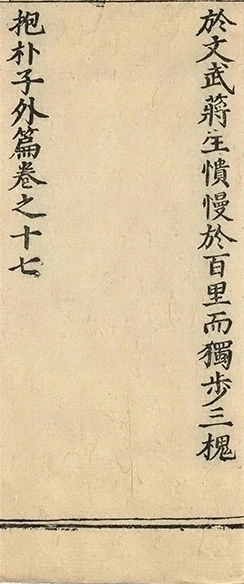 於文武蔣生憒慢於百里而獨步三槐
抱朴子外篇卷之十七